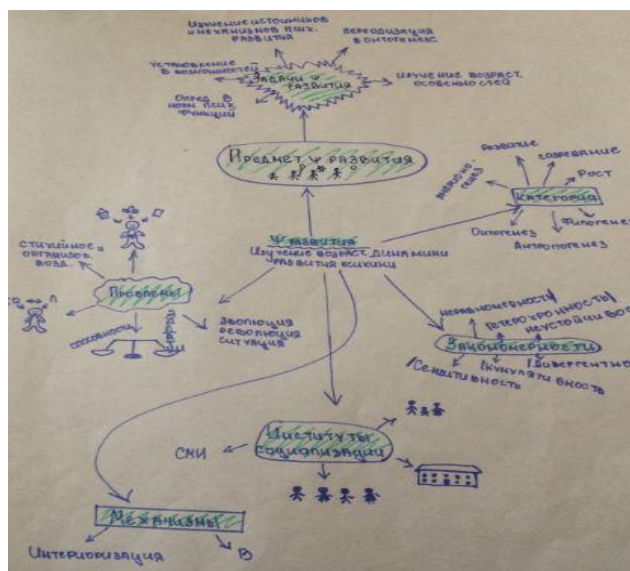 Изучение источников
и механизмов псих.
развития
периодизация
в онтогенезе
установление
в возможностей
Задачи ψ
развития
изучение возраст.
особенностей
Опред в
норм псих.
функций
Предмет ψ развития
развитие
созревание
рост
Категория
Онтогенез
Филогенез
Антропогенез
ψ развития
Изучение возраст. динамики
развития психики
стихийное
организов.
возд.
Проблемы
способности
эволюция
революция
ситуация
неравномерность
гетерохронность
неустойчивос
Закономерности
Сензитивность
кумулятивность
дивергентно
Институты
социализации
СМИ
Механизмы
Интериоризация
В